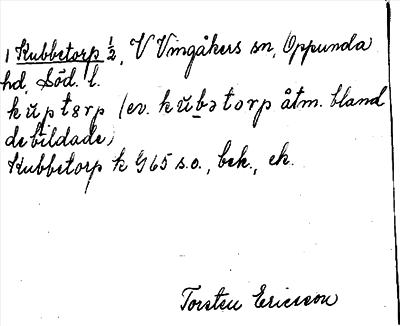 1 Kubbetorp ½, V Vingåkers sn, Oppunda
hd, Söd. l.
kŭptɜrp (ev. kŭbətɔrp åtm. bland
de bildade)
Kubbetorp k G65 s.o., bek., ek.
Torsten Ericsson